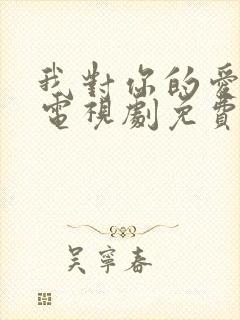 我對你的愛
電視劇免費
吳寧春